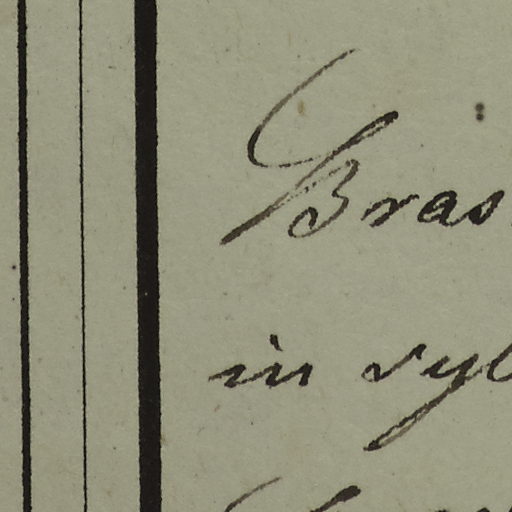 Bras
in syl